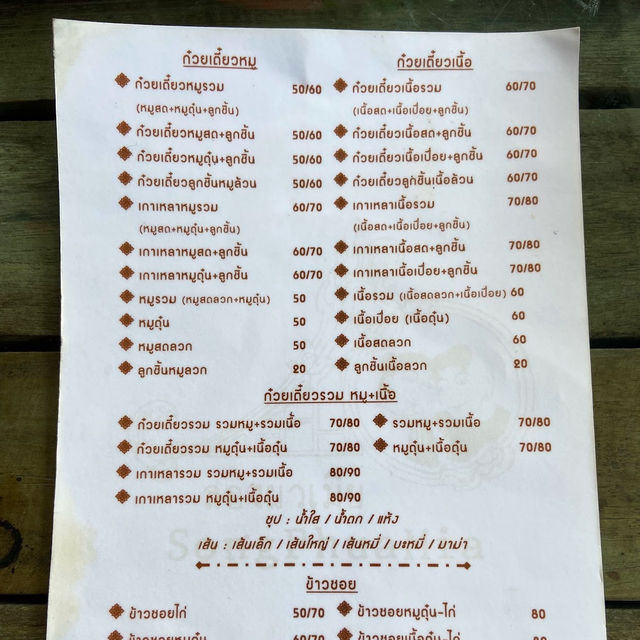 ก๋วยเตี๋ยวหมู
ก๋วยเตี๋ยวหมูรวม 50/60
(หมูสด+หมูตุ๋น+ลูกชิ้น)
ก๋วยเตี๋ยวหมูสด+ลูกชิ้น 50/60
ก๋วยเตี๋ยวหมูตุ๋น+ลูกชิ้น 50/60
ก๋วยเตี๋ยวลูกชิ้นหมูล้วน 50/60
เกาเหลาหมูรวม 60/70
(หมูสด+หมูตุ๋น+ลูกชิ้น)
เกาเหลาหมูสด+ลูกชิ้น 60/70
เกาเหลาหมูตุ๋น+ลูกชิ้น 60/70
หมูรวม (หมูสดลวก+หมูตุ๋น) 50
หมูตุ๋น 50
หมูสดลวก 50
ลูกชิ้นหมูลวก 20
ก๋วยเตี๋ยวเนื้อ
ก๋วยเตี๋ยวเนื้อรวม 60/70
(เนื้อสด+เนื้อเปื่อย+ลูกชิ้น)
ก๋วยเตี๋ยวเนื้อสด+ลูกชิ้น 60/70
ก๋วยเตี๋ยวเนื้อเปื่อย+ลูกชิ้น 60/70
ก๋วยเตี๋ยวลูกชิ้นเนื้อล้วน 60/70
เกาเหลาเนื้อรวม 70/80
(เนื้อสด+เนื้อเปื่อย+ลูกชิ้น)
เกาเหลาเนื้อสด+ลูกชิ้น 70/80
เกาเหลาเนื้อเปื่อย+ลูกชิ้น 70/80
เนื้อรวม (เนื้อสดลวก+เนื้อเปื่อย) 60
เนื้อเปื่อย (เนื้อตุ๋น) 60
เนื้อสดลวก 60
ลูกชิ้นเนื้อลวก 20
ก๋วยเตี๋ยวรวม หมู+เนื้อ
ก๋วยเตี๋ยวรวม รวมหมู+รวมเนื้อ 70/80
ก๋วยเตี๋ยวรวม หมูตุ๋น+เนื้อตุ๋น 70/80
เกาเหลารวม รวมหมู+รวมเนื้อ 80/90
เกาเหลารวม หมูตุ๋น+เนื้อตุ๋น 80/90
รวมหมู+รวมเนื้อ 70/80
หมูตุ๋น+เนื้อตุ๋น 70/80
ซุป : น้ำใส / น้ำตก / แห้ง
เส้น : เส้นเล็ก / เส้นใหญ่ / เส้นหมี่ / บะหมี่ / มาม่า
ข้าวซอย
ข้าวซอยไก่ 50/70
ข้าวซอยหมูตุ๋น-ไก่ 80
ข้าวซอยหมูตุ๋น 60/70
ข้าวซอยเนื้อตุ๋น-ไก่ 80